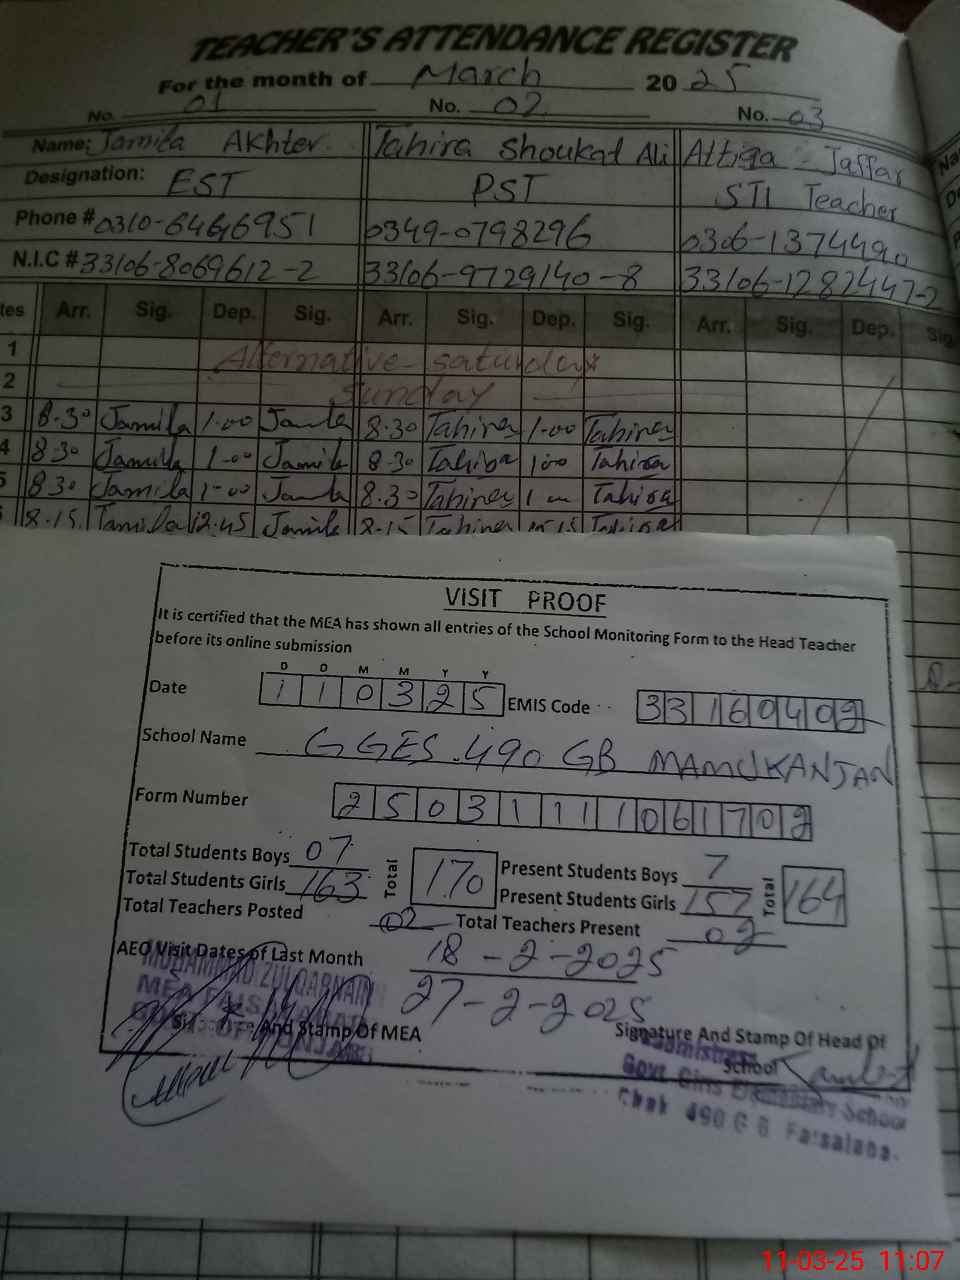 TEACHER'S ATTENDANCE REGISTER
For the month of March 2025
No. 01 No. 02 No. 03
Name: Jamila Akhter Tahira Shoukat Ali Attiqa Jaffar
Designation: EST PST STI Teacher
Phone # 0310-6466951 0349-0798296 0306-1374490
N.I.C # 33106-8069612-2 33106-9729140-8 33106-1282447-2
tes Arr. Sig. Dep. Sig. Arr. Sig. Dep. Sig. Arr. Sig. Dep. Sig
1 Alternative saturday
2 Sunday
3 8.30 Jamila 1-00 Jamila 8.30 Tahira 1-00 Tahira
4 8.30 Jamila 1-00 Jamila 8-30 Tahira 1-00 Tahira
5 8.30 Jamila 1-00 Jamila 8.30 Tahira 1 Tahira
8.15 Jamila 12.45 Jamila 8-15 Tahira Tahira
VISIT PROOF
It is certified that the MEA has shown all entries of the School Monitoring Form to the Head Teacher
before its online submission
D D M M Y Y
Date 110325 EMIS Code 33160402
School Name GGES.490 GB MAMUKANJAN
Form Number 25031111061702
Total Students Boys 07 Total 170 Present Students Boys 7 Total 164
Total Students Girls 163 Present Students Girls 157
Total Teachers Posted 02 Total Teachers Present 02
AEO Visit Dates of Last Month 18-2-2025
27-2-2025
MUHAMMAD ZULQARNAIN
MEA FAISALABAD
And Stamp Of MEA
Signature And Stamp Of Head Of
School
Govt Girls Elementary School
Chak 490 G B Faisalabad.
11-03-25 11:07